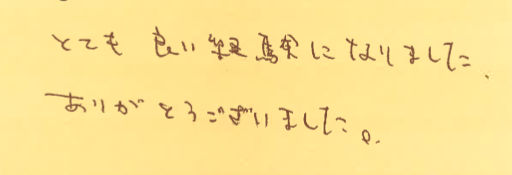 とても 良い経験になりました.
ありがとうございました。